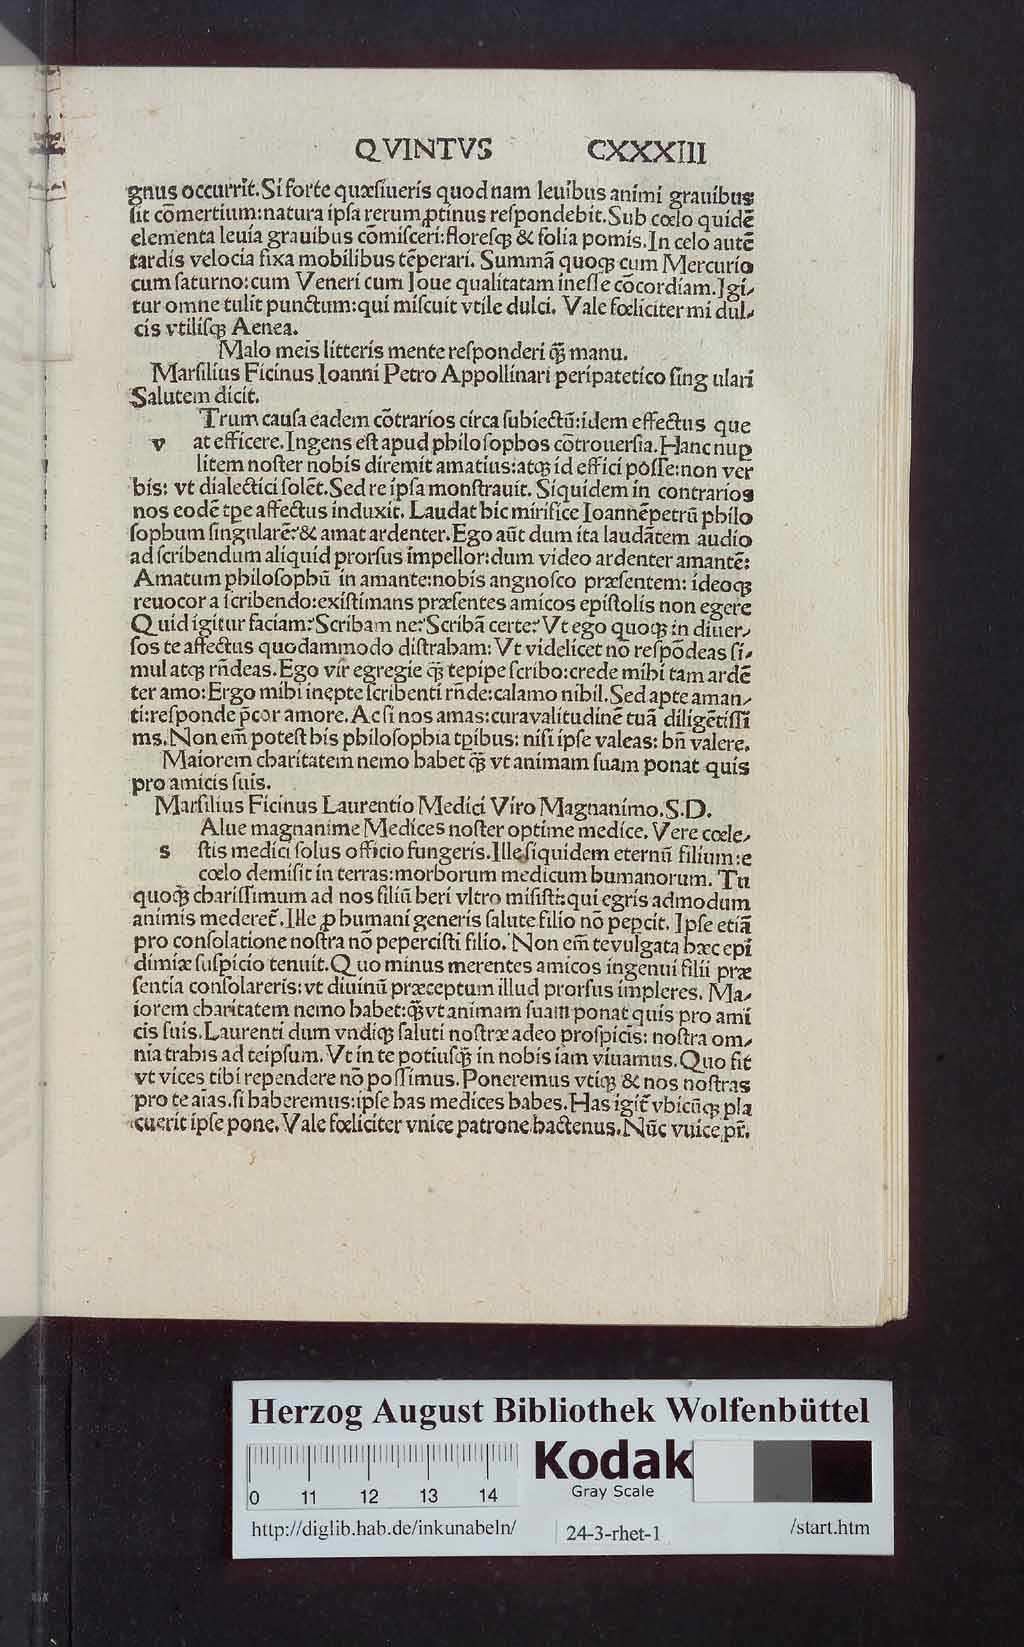 QVINTVS CXXXIII
gnus occurrit. Si forte quæſiueris quod nam leuibus animi grauibus
ſit cõmertium: natura ipſa rerum ꝓtinus reſpondebit. Sub cœlo quidẽ
elementa leuia grauibus cõmiſceri: floreſqꝫ & folia pomis. In celo autẽ
tardis velocia fixa mobilibus tẽperari. Summã quoqꝫ cum Mercurio
cum ſaturno: cum Veneri cum Ioue qualitatam ineſſe cõcordiam. Igi⸗
tur omne tulit punctum: qui miſcuit vtile dulci. Vale fœliciter mi dul⸗
cis vtiliſqꝫ Aenea.
Malo meis litteris mente reſponderi qꝫ̃ manu.
Marſilius Ficinus Ioanni Petro Appollinari peripatetico ſing ulari
Salutem dicit.
Trum cauſa eadem cõtrarios circa ſubiectũ: idem effectus que
v at efficere. Ingens eſt apud philoſophos cõtrouerſia. Hanc nuꝑ
litem noſter nobis diremit amatius: atqꝫ id effici poſſe: non ver
bis: vt dialectici ſolẽt. Sed re ipſa monſtrauit. Siquidem in contrarios
nos eodẽ tꝑe affectus induxit. Laudat hic mirifice Ioannẽ petrũ philo
ſophum ſingularẽ: & amat ardenter. Ego aũt dum ita laudãtem audio
ad ſcribendum aliquid prorſus impellor: dum video ardenter amantẽ:
Amatum philoſophũ in amante: nobis angnoſco præſentem: ideoqꝫ
reuocor a ſcribendo: exiſtimans præſentes amicos epiſtolis non egere
Quid igitur faciam? Scribam ne? Scribã certe? Vt ego quoqꝫ in diuer⸗
ſos te affectus quodammodo diſtraham: Vt videlicet nõ reſpõdeas ſi⸗
mul atqꝫ rñdeas. Ego vir egregie qꝫ̃ tepipe ſcribo: crede mihi tam ardẽ
ter amo: Ergo mihi inepte ſcribenti rñde: calamo nihil. Sed apte aman⸗
ti: reſponde p̃cor amore. Ac ſi nos amas: cura valitudinẽ tuã diligẽtiſſi
ms. Non em̃ poteſt his philoſophia tꝑibus: niſi ipſe valeas: bñ valere.
Maiorem charitatem nemo habet qꝫ̃ vt animam ſuam ponat quis
pro amicis ſuis.
Marſilius Ficinus Laurentio Medici Viro Magnanimo. S. D.
Alue magnanime Medices noſter optime medice. Vere cœle⸗
s ſtis medici ſolus officio fungeris. Ille ſiquidem eternũ filium: e
cœlo demiſit in terras: morborum medicum humanorum. Tu
quoqꝫ chariſſimum ad nos filiũ heri vltro miſiſti: qui egris admodum
animis mederet̃. Ille ꝓ humani generis ſalute filio nõ peꝑcit. Ipſe etiã
pro conſolatione noſtra nõ peperciſti filio. Non em̃ te vulgata hæc epi
dimiæ ſuſpicio tenuit. Quo minus merentes amicos ingenui filii præ
ſentia conſolareris: vt diuinũ præceptum illud prorſus impleres. Ma⸗
iorem charitatem nemo habet: qꝫ̃ vt animam ſuam ponat quis pro ami
cis ſuis. Laurenti dum vndiqꝫ ſaluti noſtræ adeo proſpicis: noſtra om⸗
nia trahis ad teipſum. Vt in te potiuſqꝫ̃ in nobis iam viuamus. Quo fit
vt vices tibi rependere nõ poſſimus. Poneremus vtiqꝫ & nos noſtras
pro te aĩas. ſi haberemus: ipſe has medices habes. Has igit̃ vbicũqꝫ pla
cuerit ipſe pone. Vale fœliciter vnice patrone hactenus. Nũc vuice pr̃.
Herzog August Bibliothek Wolfenbüttel
Kodak
Gray Scale
0 11 12 13 14
http://diglib.hab.de/inkunabeln/ 24-3-rhet-1 /start.htm